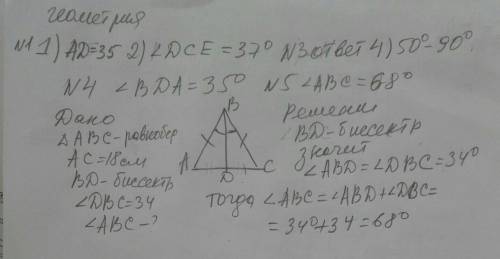 геометрия
N1 1) AD=35 2) ∠DCE=37° N3 ответ 4) 50°-90°.
N4 ∠BDA=35° N5 ∠ABC=68°
Дано
△ABC-равнобер
AC=18см
BD-биссектр
∠DBC=34
∠ABC-?
B
A
D
C
Решени
BD-биссектр
значит
∠ABD=∠DBC=34°
тогда ∠ABC=∠ABD+∠DBC=
=34°+34=68°